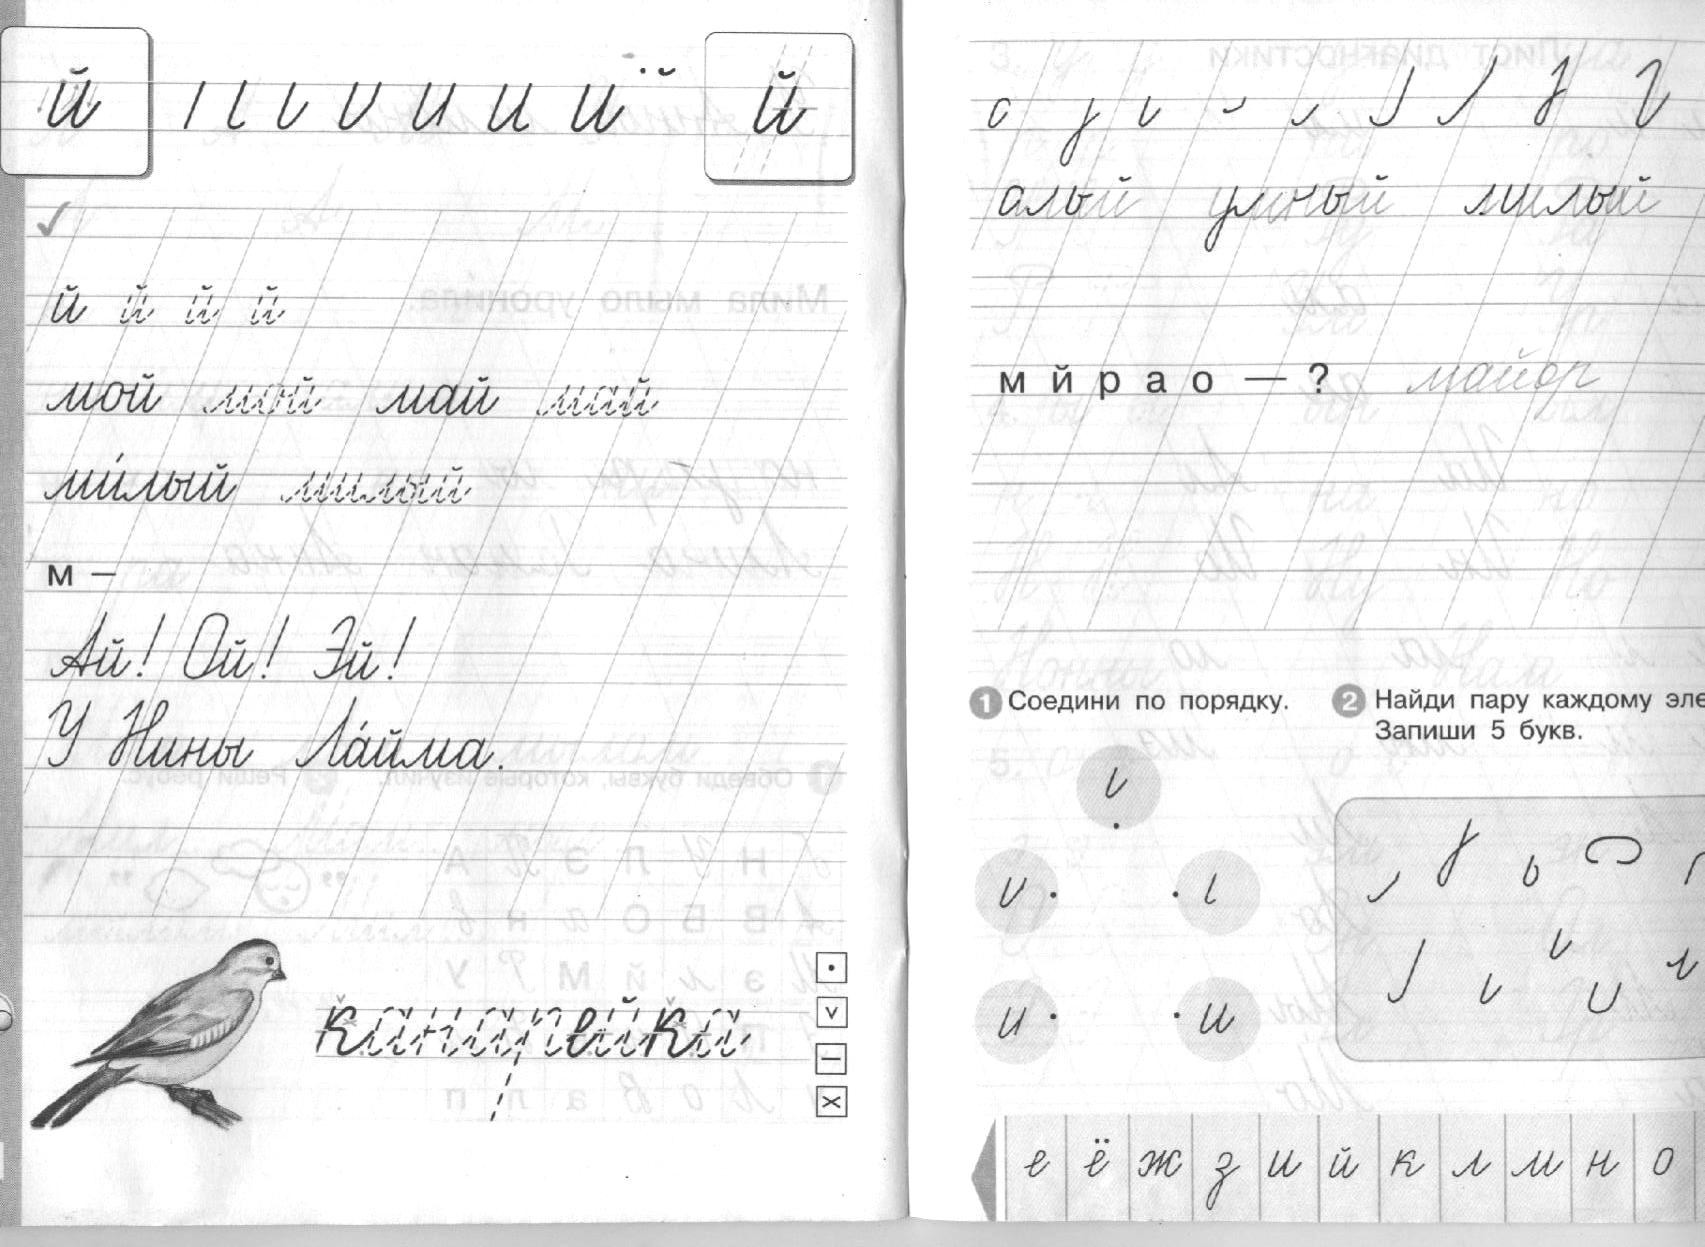 й й й
й й й й
мой мой май май
ми́лый милый
м –
Ай! Ой! Эй!
У Нины Ла́йма.
канарейка
алый умный милый
м й р а о — ? майор
1 Соедини по порядку.
2 Найди пару каждому эле
Запиши 5 букв.
е ё ж з и й к л м н о